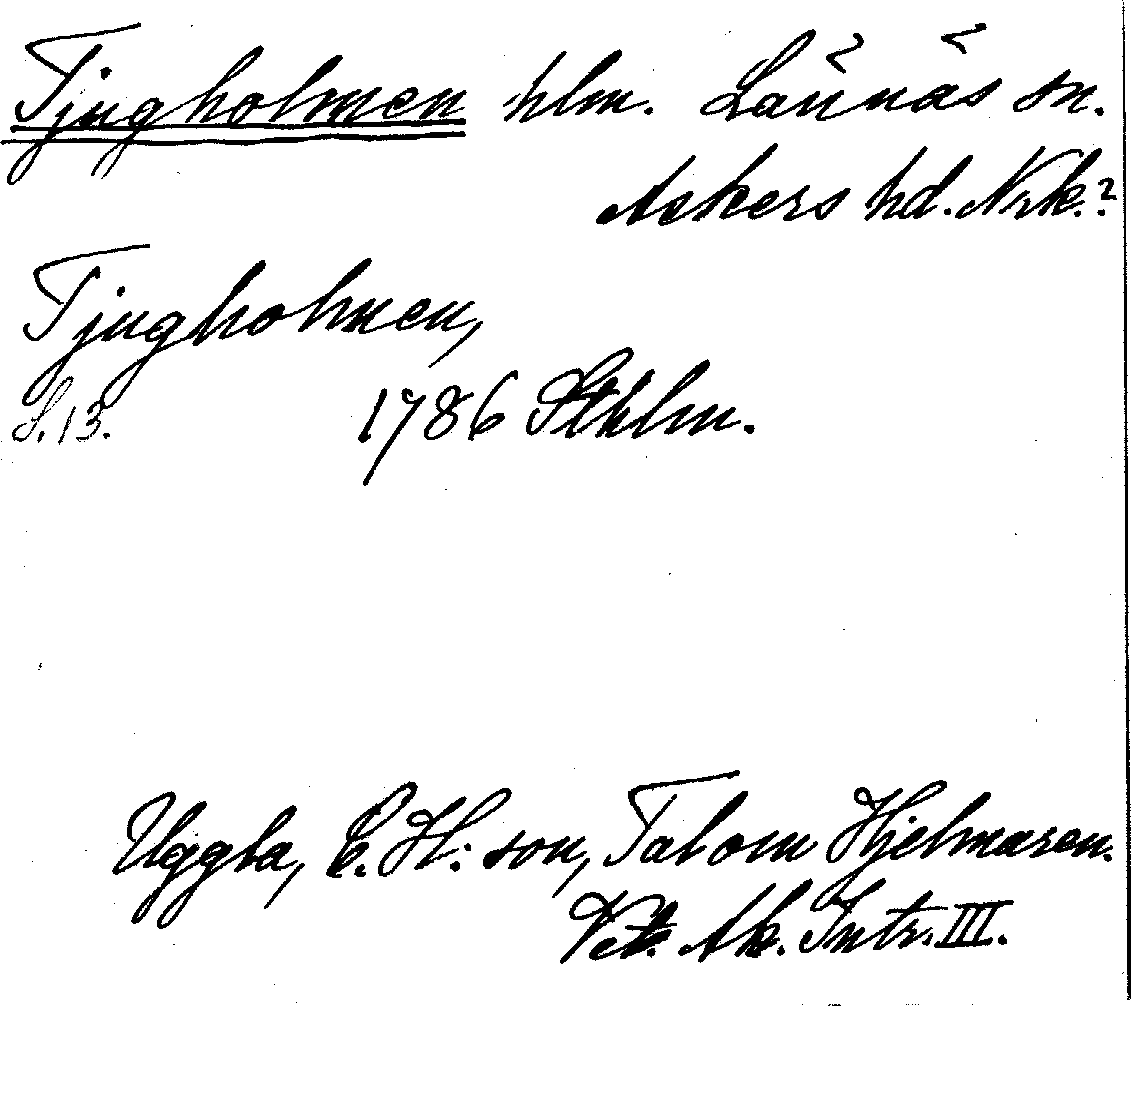 Tjugholmen hlm. Lännäs sn.
Askers hd. Nrk.?
Tjugholmen,
S. 13. 1786 Sthlm.
Uggla, C. H:son, Tal om Hjelmaren.
Vet. Ak. Intr. III.